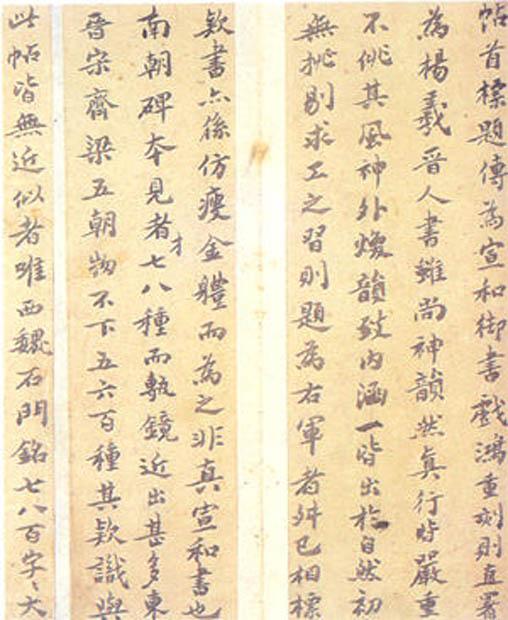 帖首標題傳為宣和御書戲鴻重刻則直署
為楊羲晉人書雖尚神韻然眞行皆嚴重
不佻其風神外煥韻致內涵一皆出於自然初
無挑剔求工之習則題為右軍者舛已相標
欵書亦係仿瘦金體而為之非真宣和書也
南朝碑本見者才七八種而甎鏡近出甚多東
晉宋齊梁五朝物不下五六百種其欵識與
此帖皆無近似者唯西魏石門銘七八百字〻大